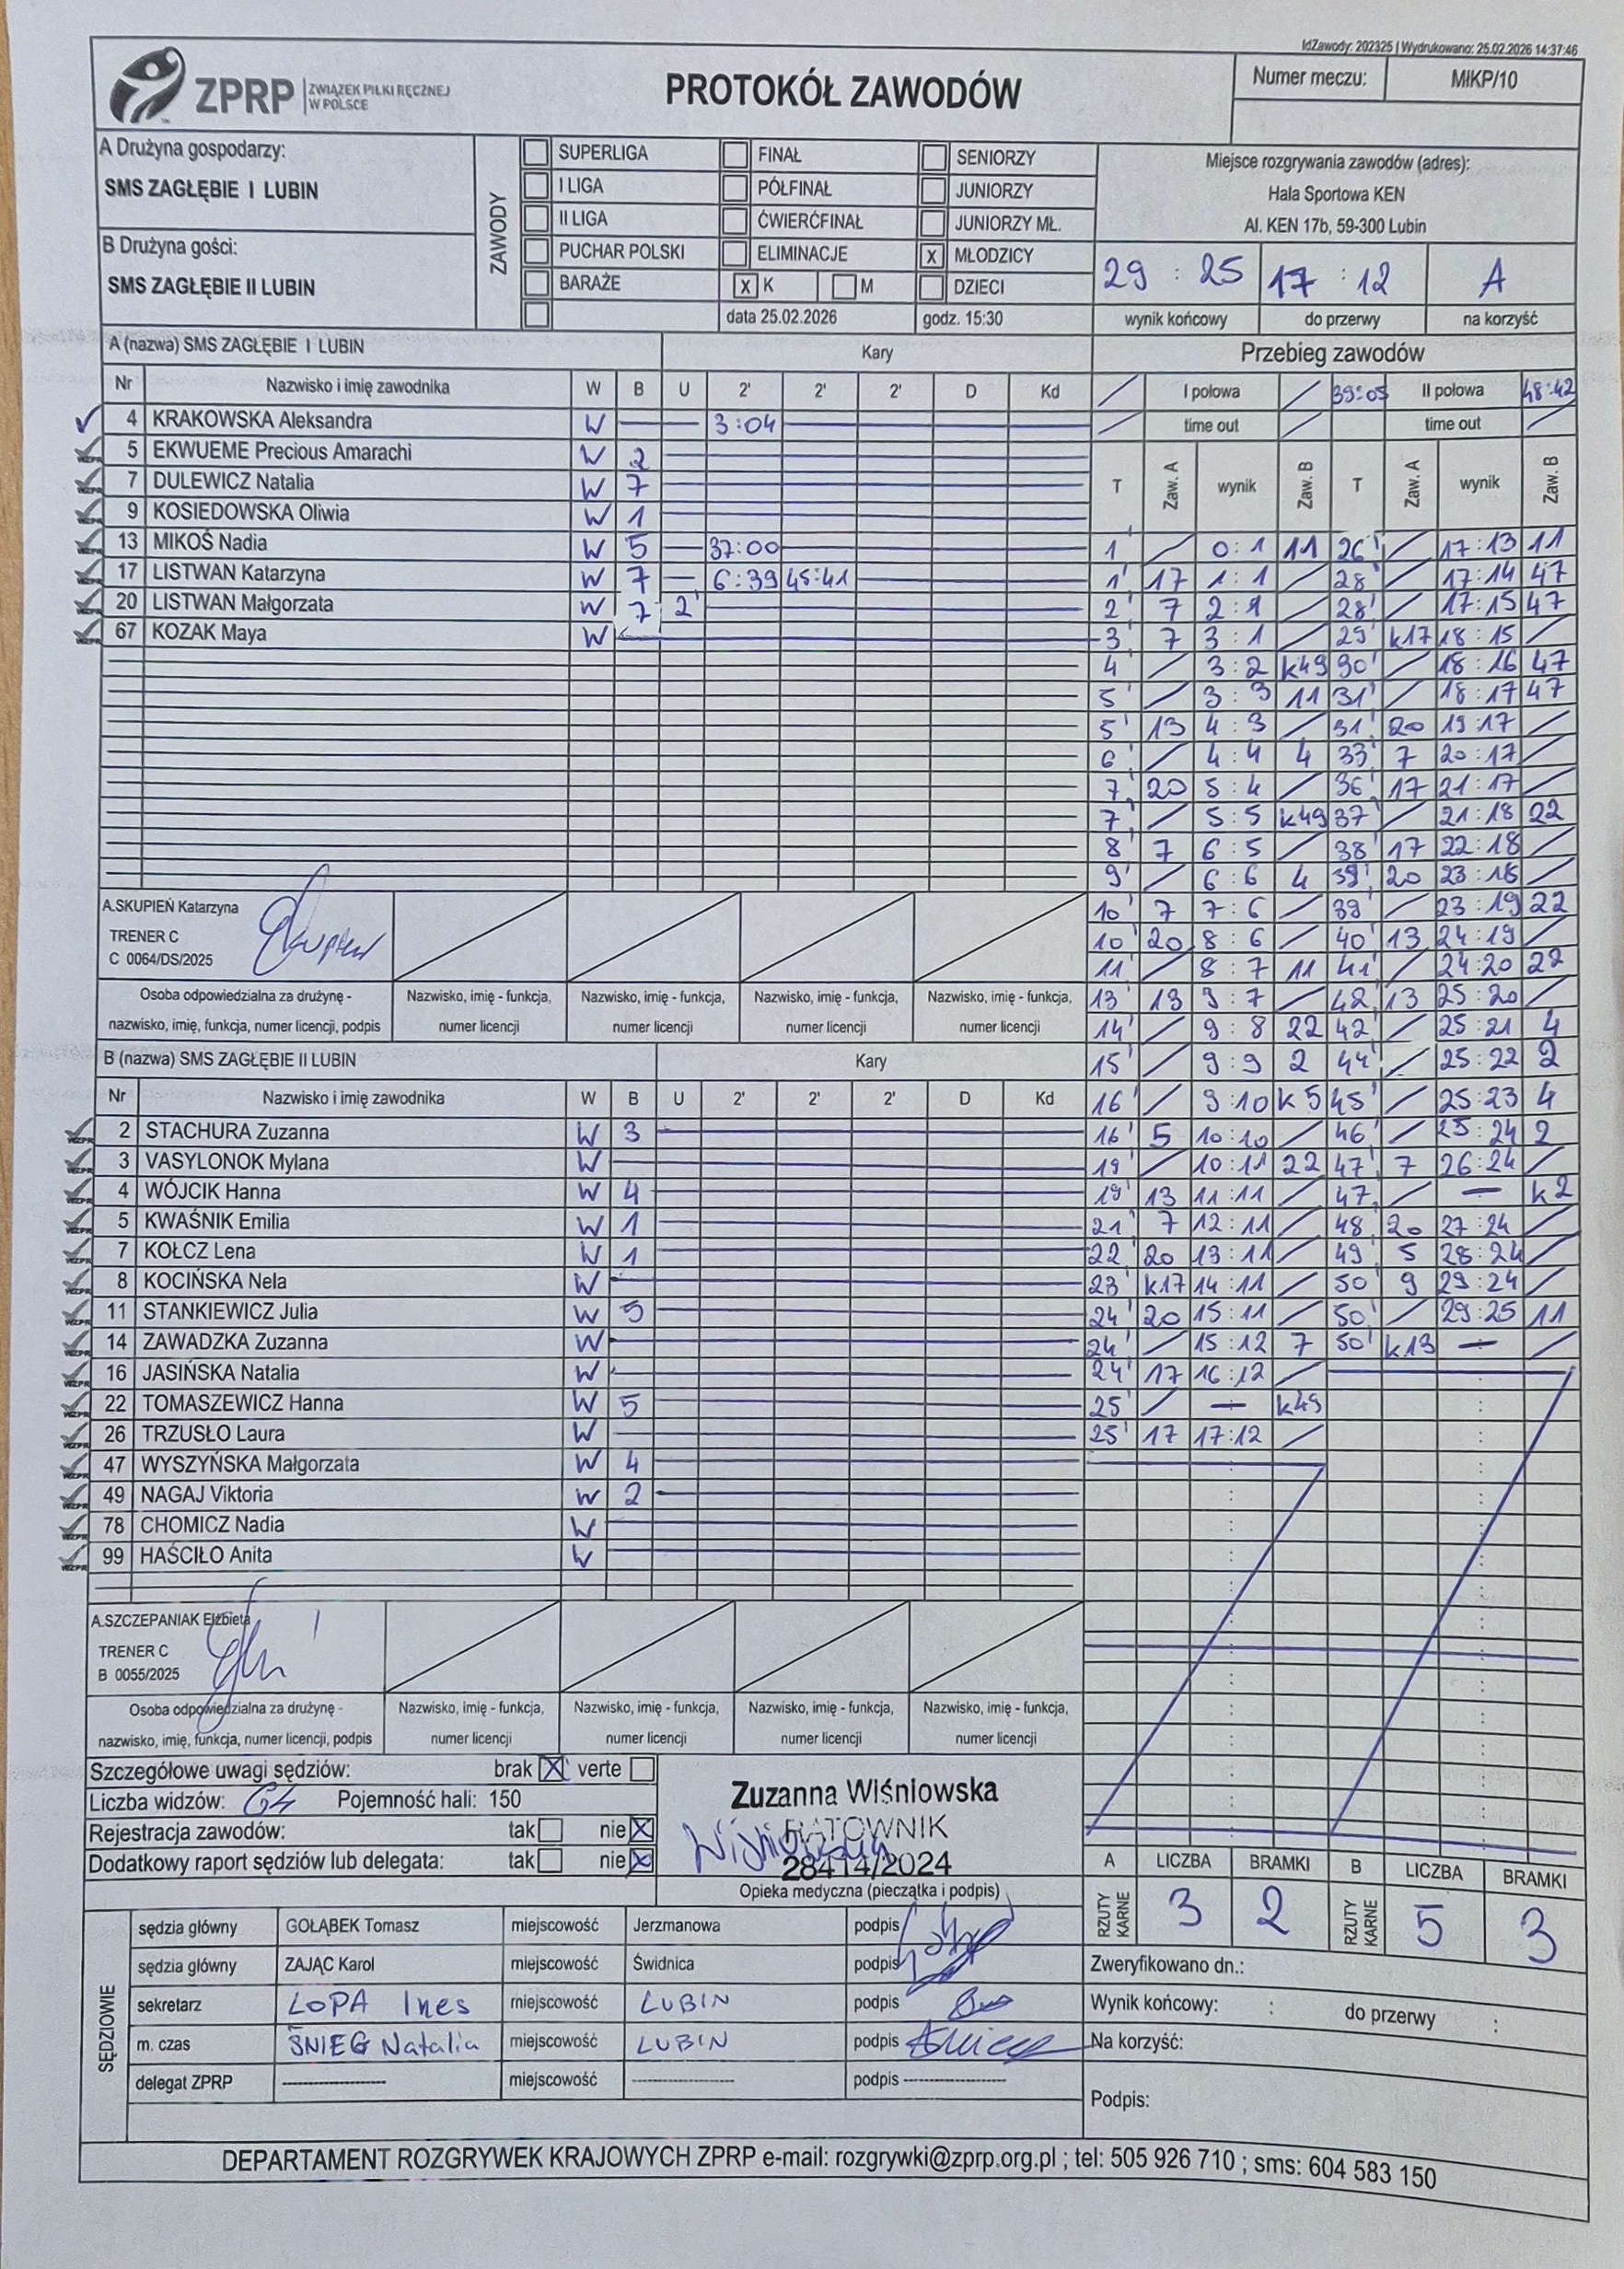 IdZawody: 202325 | Wydrukowano: 25.02.2026 14:37:46
ZPRP ZWIĄZEK PIŁKI RĘCZNEJ W POLSCE
PROTOKÓŁ ZAWODÓW
Numer meczu: MłKP/10
A Drużyna gospodarzy:
SMS ZAGŁĘBIE I LUBIN
B Drużyna gości:
SMS ZAGŁĘBIE II LUBIN
ZAWODY
SUPERLIGA FINAŁ SENIORZY
I LIGA PÓŁFINAŁ JUNIORZY
II LIGA ĆWIERĆFINAŁ JUNIORZY MŁ.
PUCHAR POLSKI ELIMINACJE x MŁODZICY
BARAŻE x K M DZIECI
data 25.02.2026 godz. 15:30
Miejsce rozgrywania zawodów (adres):
Hala Sportowa KEN
Al. KEN 17b, 59-300 Lubin
29 : 25 17 : 12 A
wynik końcowy do przerwy na korzyść
A (nazwa) SMS ZAGŁĘBIE I LUBIN Kary
Nr Nazwisko i imię zawodnika W B U 2' 2' 2' D Kd
4 KRAKOWSKA Aleksandra W 3:04
5 EKWUEME Precious Amarachi W 2
7 DULEWICZ Natalia W 7
9 KOSIEDOWSKA Oliwia W 1
13 MIKOŚ Nadia W 5 37:00
17 LISTWAN Katarzyna W 7 6:39 45:41
20 LISTWAN Małgorzata W 7 2'
67 KOZAK Maya W
A.SKUPIEŃ Katarzyna
TRENER C
C 0064/DS/2025
Osoba odpowiedzialna za drużynę - nazwisko, imię, funkcja, numer licencji, podpis
Nazwisko, imię - funkcja, numer licencji
Nazwisko, imię - funkcja, numer licencji
Nazwisko, imię - funkcja, numer licencji
Nazwisko, imię - funkcja, numer licencji
B (nazwa) SMS ZAGŁĘBIE II LUBIN Kary
Nr Nazwisko i imię zawodnika W B U 2' 2' 2' D Kd
2 STACHURA Zuzanna W 3
3 VASYLONOK Mylana W
4 WÓJCIK Hanna W 4
5 KWAŚNIK Emilia W 1
7 KOŁCZ Lena W 1
8 KOCIŃSKA Nela W
11 STANKIEWICZ Julia W 5
14 ZAWADZKA Zuzanna W
16 JASIŃSKA Natalia W
22 TOMASZEWICZ Hanna W 5
26 TRZUSŁO Laura W
47 WYSZYŃSKA Małgorzata W 4
49 NAGAJ Viktoria W 2
78 CHOMICZ Nadia W
99 HAŚCIŁO Anita W
A.SZCZEPANIAK Elżbieta
TRENER C
B 0055/2025
Osoba odpowiedzialna za drużynę - nazwisko, imię, funkcja, numer licencji, podpis
Nazwisko, imię - funkcja, numer licencji
Nazwisko, imię - funkcja, numer licencji
Nazwisko, imię - funkcja, numer licencji
Nazwisko, imię - funkcja, numer licencji
Przebieg zawodów
/ I połowa / 39:05 II połowa 48:42
/ time out / time out /
T Zaw. A wynik Zaw. B T Zaw. A wynik Zaw. B
1' / 0:1 11 26' / 17:13 11
1' 17 1:1 / 28' / 17:14 47
2' 7 2:1 / 28' / 17:15 47
3' 7 3:1 / 29' k17 18:15 /
4' / 3:2 k49 30' / 18:16 47
5' / 3:3 11 31' / 18:17 47
5' 13 4:3 / 31' 20 19:17 /
6' / 4:4 4 33' 7 20:17 /
7' 20 5:4 / 36' 17 21:17 /
7' / 5:5 k49 37' / 21:18 22
8' 7 6:5 / 38' 17 22:18 /
9' / 6:6 4 39' 20 23:18 /
10' 7 7:6 / 39' / 23:19 22
10' 20 8:6 / 40' 13 24:19 /
11' / 8:7 11 41' / 24:20 22
13' 13 9:7 / 42' 13 25:20 /
14' / 9:8 22 42' / 25:21 4
15' / 9:9 2 44' / 25:22 2
16' / 9:10 k5 45' / 25:23 4
16' 5 10:10 / 46' / 25:24 2
19' / 10:11 22 47' 7 26:24 /
19' 13 11:11 / 47' / — k2
21' 7 12:11 / 48' 20 27:24 /
22' 20 13:11 / 49' 5 28:24 /
23' k17 14:11 / 50' 9 29:24 /
24' 20 15:11 / 50' / 29:25 11
24' / 15:12 7 50' k13 — /
24' 17 16:12 /
25' / — k49
25' 17 17:12 /
Szczegółowe uwagi sędziów: brak X verte
Liczba widzów: 64 Pojemność hali: 150
Rejestracja zawodów: tak nie X
Dodatkowy raport sędziów lub delegata: tak nie X
Zuzanna Wiśniowska
RATOWNIK
28414/2024
Opieka medyczna (pieczątka i podpis)
A LICZBA BRAMKI B LICZBA BRAMKI
RZUTY KARNE 3 2 RZUTY KARNE 5 3
SĘDZIOWIE
sędzia główny GOŁĄBEK Tomasz miejscowość Jerzmanowa podpis
sędzia główny ZAJĄC Karol miejscowość Świdnica podpis
sekretarz LOPA Ines miejscowość LUBIN podpis
m. czas ŚNIEG Natalia miejscowość LUBIN podpis
delegat ZPRP ---------- miejscowość ---------- podpis ----------
Zweryfikowano dn.:
Wynik końcowy: : do przerwy :
Na korzyść:
Podpis:
DEPARTAMENT ROZGRYWEK KRAJOWYCH ZPRP e-mail: rozgrywki@zprp.org.pl ; tel: 505 926 710 ; sms: 604 583 150